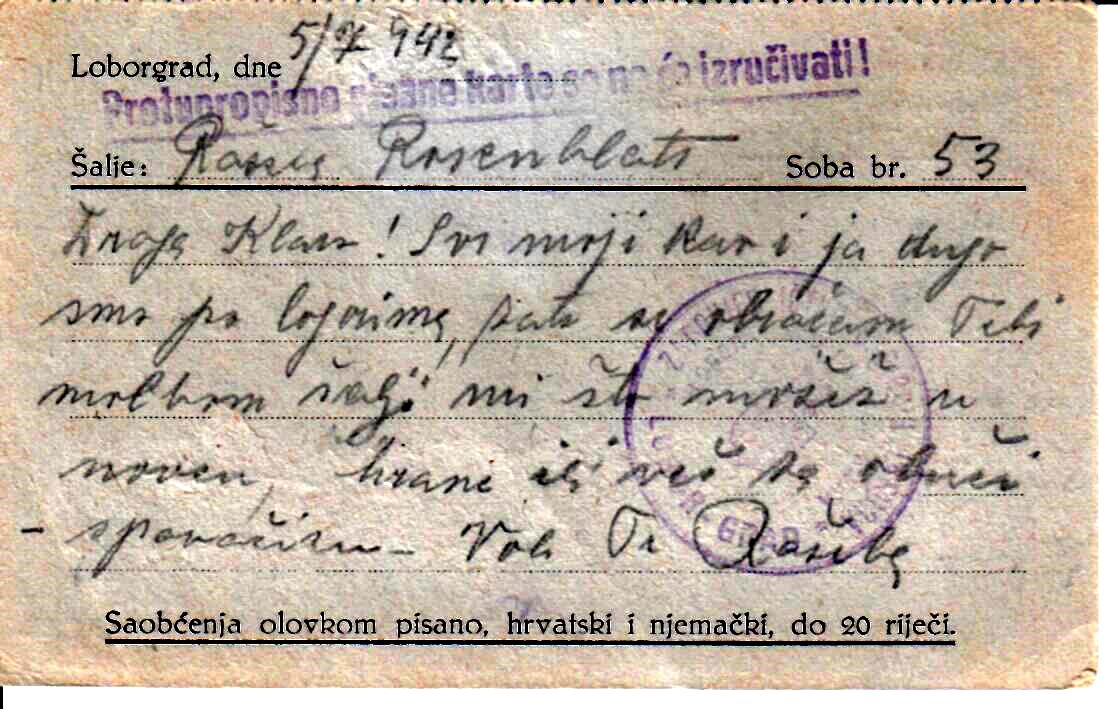 Loborgrad, dne 5/7 942
Protupropisno pisane karte se ne će izručivati!
Šalje: Rosenblatt Soba br. 53
Draga Klara! Svi moji kao i ja dugo
smo po logorima, zato se obraćam Tebi
molbom šalji mi što možeš u
novcu, hrane ili već za obuci
Voli Te
GRAD
Saobćenja olovkom pisano, hrvatski i njemački, do 20 riječi.